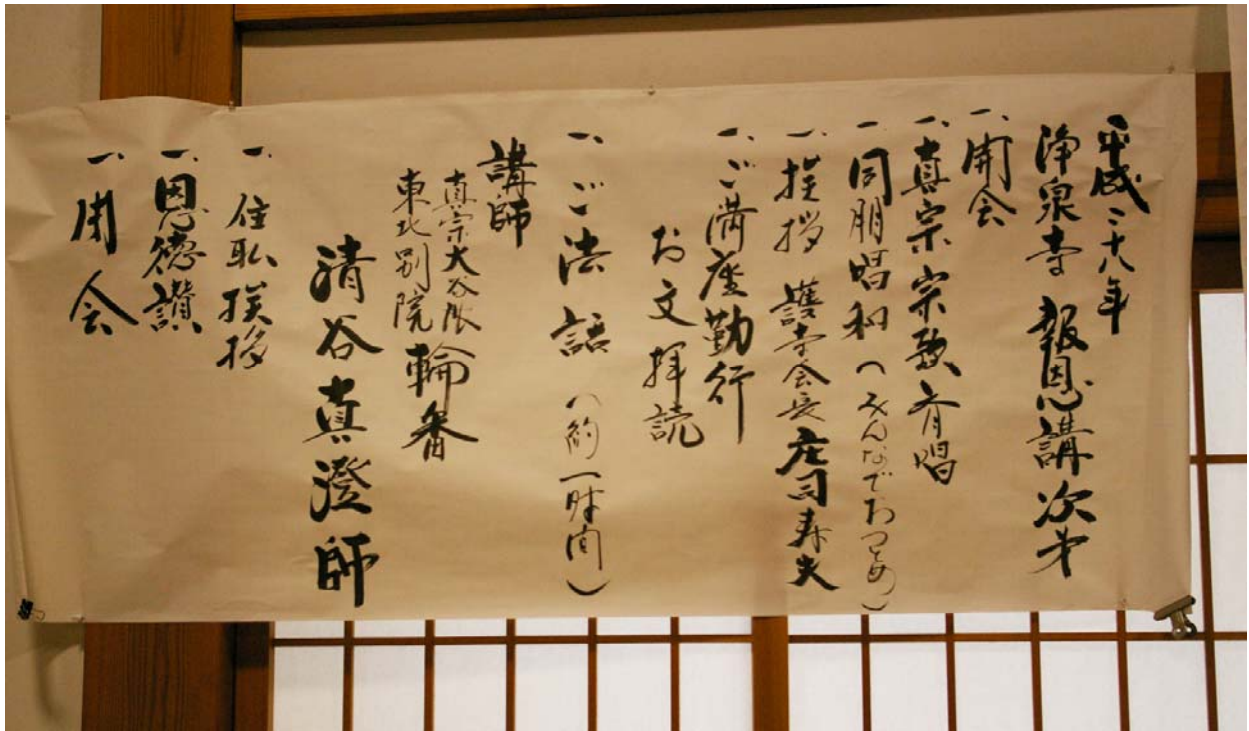 平成二十八年
浄泉寺 報恩講次第
一、開会
一、真宗宗歌斉唱
一、同朋唱和（みんなでおつとめ）
一、挨拶 護寺会長 庄司寿夫
一、ご満座勤行
お文拝読
一、ご法話（約一時間）
講師
真宗大谷派
東北別院 輪番
清谷真澄師
一、住職挨拶
一、恩徳讃
一、閉会